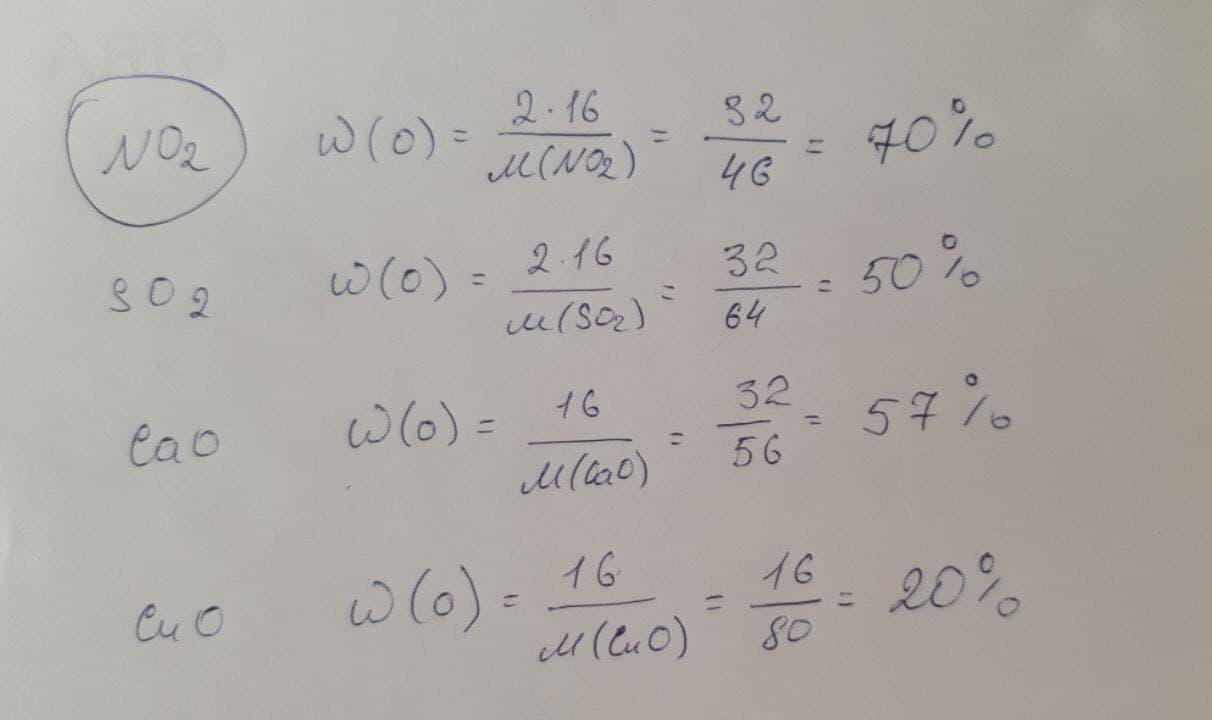 NO₂ W(O) = 2·16 / M(NO₂) = 32 / 46 = 70%
SO₂ W(O) = 2·16 / M(SO₂) = 32 / 64 = 50%
CaO W(O) = 16 / M(CaO) = 32 / 56 = 57%
CuO W(O) = 16 / M(CuO) = 16 / 80 = 20%